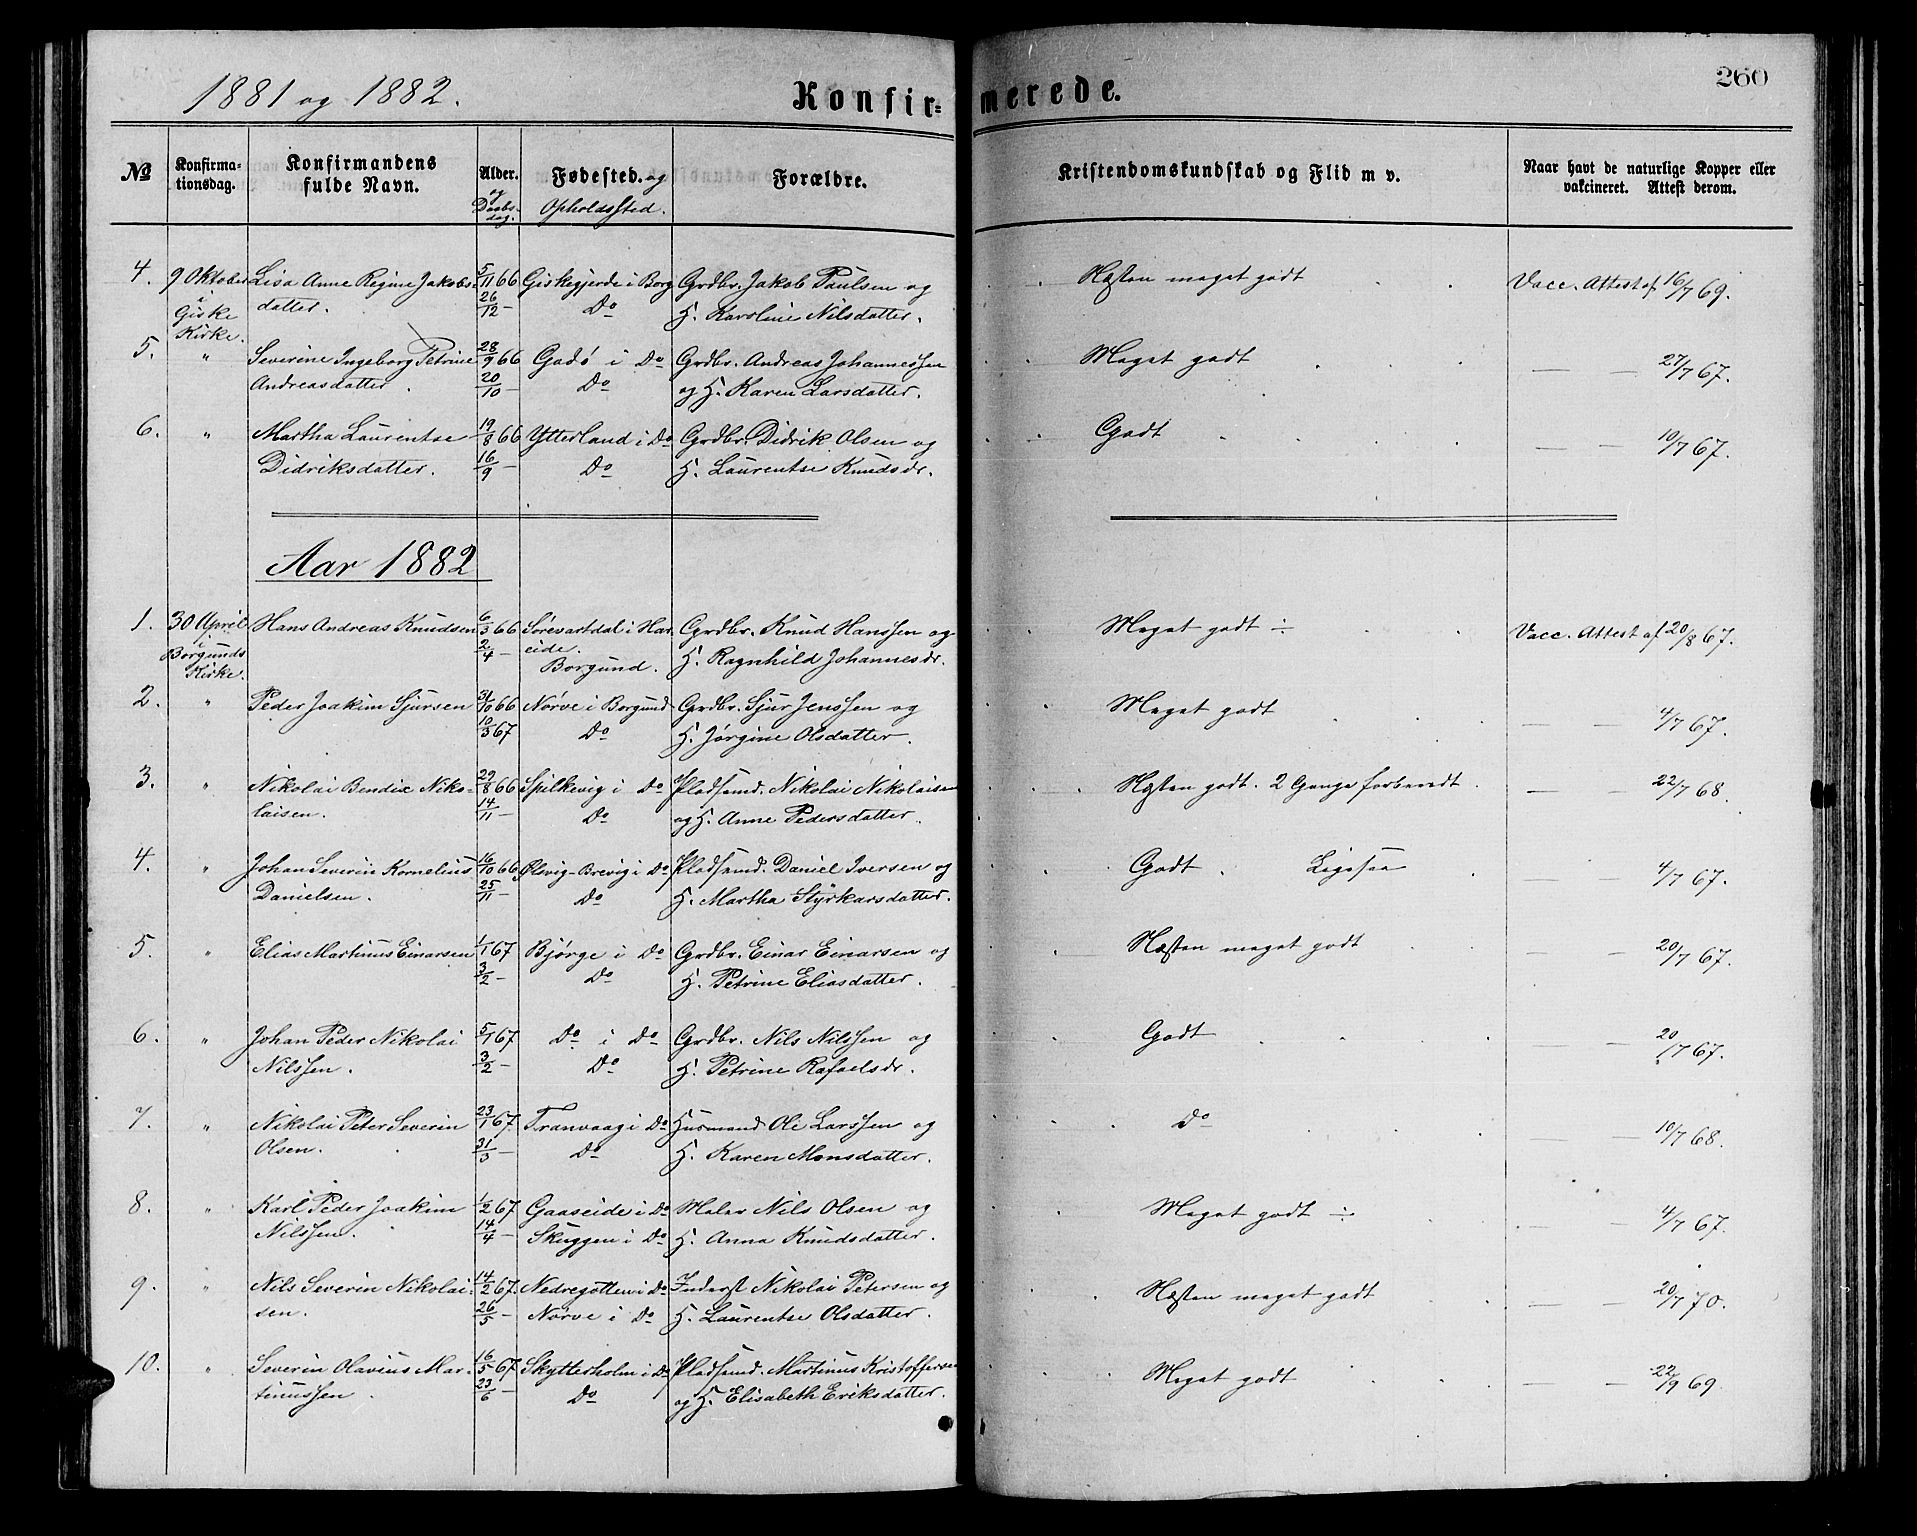 1881 og 1882.
Konfirmerede.
260
№ Konfirmationsdag. Konfirmandens fulde Navn. Alder. og Daabsdag. Fødested. og Opholdssted. Forældre. Kristendomskundskab og Flid m v. Naar havt de naturlige Kopper eller vakcineret. Attest derom.
4. 9 Oktober Lisa Anne Regine Jakobs- 5/11 66 Giskegjerde i Borg Grdbr. Jakob Paulsen og Næsten meget godt Vacc. Attest af 16/7 69.
i Giske Kirke. datter. 26/12 — Do H. Karoline Nilsdatter.
5. " Severine Ingeborg Petrine 28/9 66 Godø i Do Grdbr. Andreas Johannessen Meget godt — — 27/7 67.
Andreasdatter. 20/10 Do og H. Karen Larsdatter.
6. " Martha Laurentse 19/8 66 Ytterland i Do Grdbr. Didrik Olsen og Godt — — 10/7 67.
Didriksdatter. 16/9 — Do H. Laurentse Knudsdr.
Aar 1882
1. 30 April Hans Andreas Knudsen 6/3 66 Sørevartdal i Har- Grdbr. Knud Hanssen og Meget godt ÷ Vacc. Attest af 20/8 67.
i Borgunds Kirke. 2/4 — eide. Borgund. H. Ragnhild Johannesdr.
2. " Peder Joakim Sjursen 31/10 66 Nørve i Borgund Grdbr. Sjur Jenssen og Meget godt — — 4/7 67.
10/3 67 Do H. Jørgine Olsdatter.
3. " Nikolai Bendix Niko- 29/8 66 Spilkevig i Do Pladsmd. Nikolai Nikolaisen Næsten godt. 2 Gange forberedt. — — 22/7 68.
laisen. 14/11 — Do og H. Anne Pedersdatter.
4. " Johan Severin Kornelius 16/10 66 Ølvig-Brevig i Do Pladsmd. Daniel Iversen og Godt. Ligesaa — — 4/7 67.
Danielsen. 25/11 — Do H. Martha Styrkarsdatter.
5. " Elias Martinus Einarsen 1/1 67 Bjørge i Do Grdbr. Einar Einarsen og Næsten meget godt — — 20/7 67.
3/2 — Do H. Petrine Eliasdatter.
6. " Johan Peder Nikolai 5/1 67 Do i Do Grdbr. Nils Nilssen og Godt — — 20/7 67.
Nilssen. 3/2 — Do H. Petrine Rafaelsdr.
7. " Nikolai Peter Severin 23/1 67. Tranvaag i Do Husmand Ole Larssen og Do — — 10/7 68.
Olsen. 31/3 — Do H. Karen Monsdatter.
8. " Karl Peder Joakim 1/2 67 Gaaseide i Do Maler Nils Olsen og Meget godt ÷ — — 4/7 67.
Nilssen. 14/4 — Skuggen i Do H. Anna Knudsdatter.
9. " Nils Severin Nikolai- 14/2 67. Nedregotten i Do Inderst Nikolai Petersen og Næsten meget godt — — 20/7 70.
sen. 26/5 — Nørve i Do H. Laurentse Olsdatter.
10. " Severin Olavius Mar- 16/5 67 Skytterholm i Do Pladsmd. Martinus Kristoffersen Meget godt — — 22/9 69.
tinussen. 23/6 — Do og H. Elisabeth Eriksdatter.